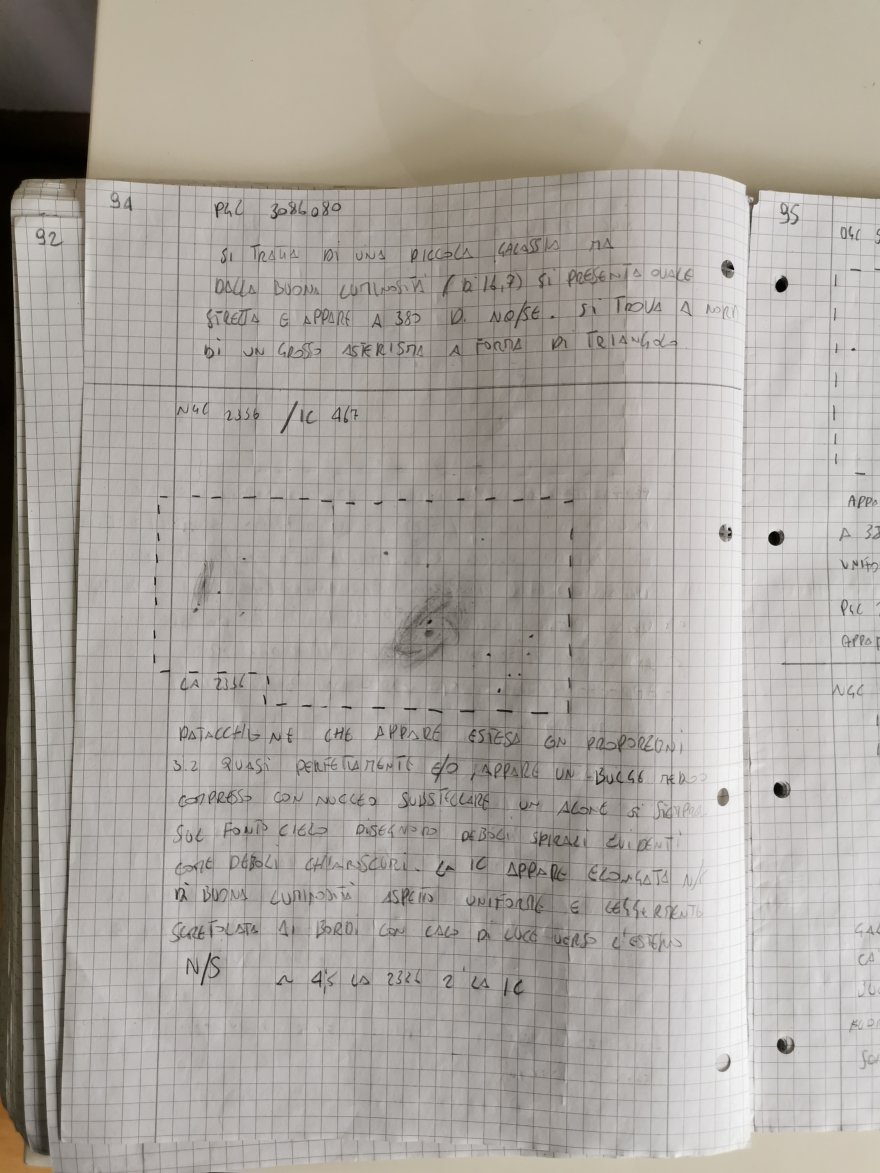 92
94
PGC 3086080
SI TRATTA DI UNA PICCOLA GALASSIA MA
DALLA BUONA LUMINOSITÀ (b 16,7) SI PRESENTA OVALE
STRETTA E APPARE A 380 D. NO/SE. SI TROVA A NORD
DI UN GROSSO ASTERISMA A FORMA DI TRIANGOLO.
NGC 2336 / IC 467
LA 2336
CHE APPARE ESTESA PROPORZIONI
3:2 QUASI PERFETTAMENTE E/O, APPARE UN BULGE MEDIO
COMPRESSO CON NUCLEO SUBSTELLARE UN ALONE SI
SUL FONDO CIELO DISEGNANO DEBOLI SPIRALI EVIDENTI
COME DEBOLI CHIAROSCURI. LA IC APPARE ELONGATA N/S
DI BUONA LUMINOSITÀ ASPETTO UNIFORME E LEGGERMENTE
SGRETOLATA AI BORDI CON CALO DI LUCE VERSO L'ESTERNO
N/S ~ 4,5 LA 2336 2' LA IC
95
APPA
A 38
UNIFO
PGC
APPA
NGC
GAL
CA